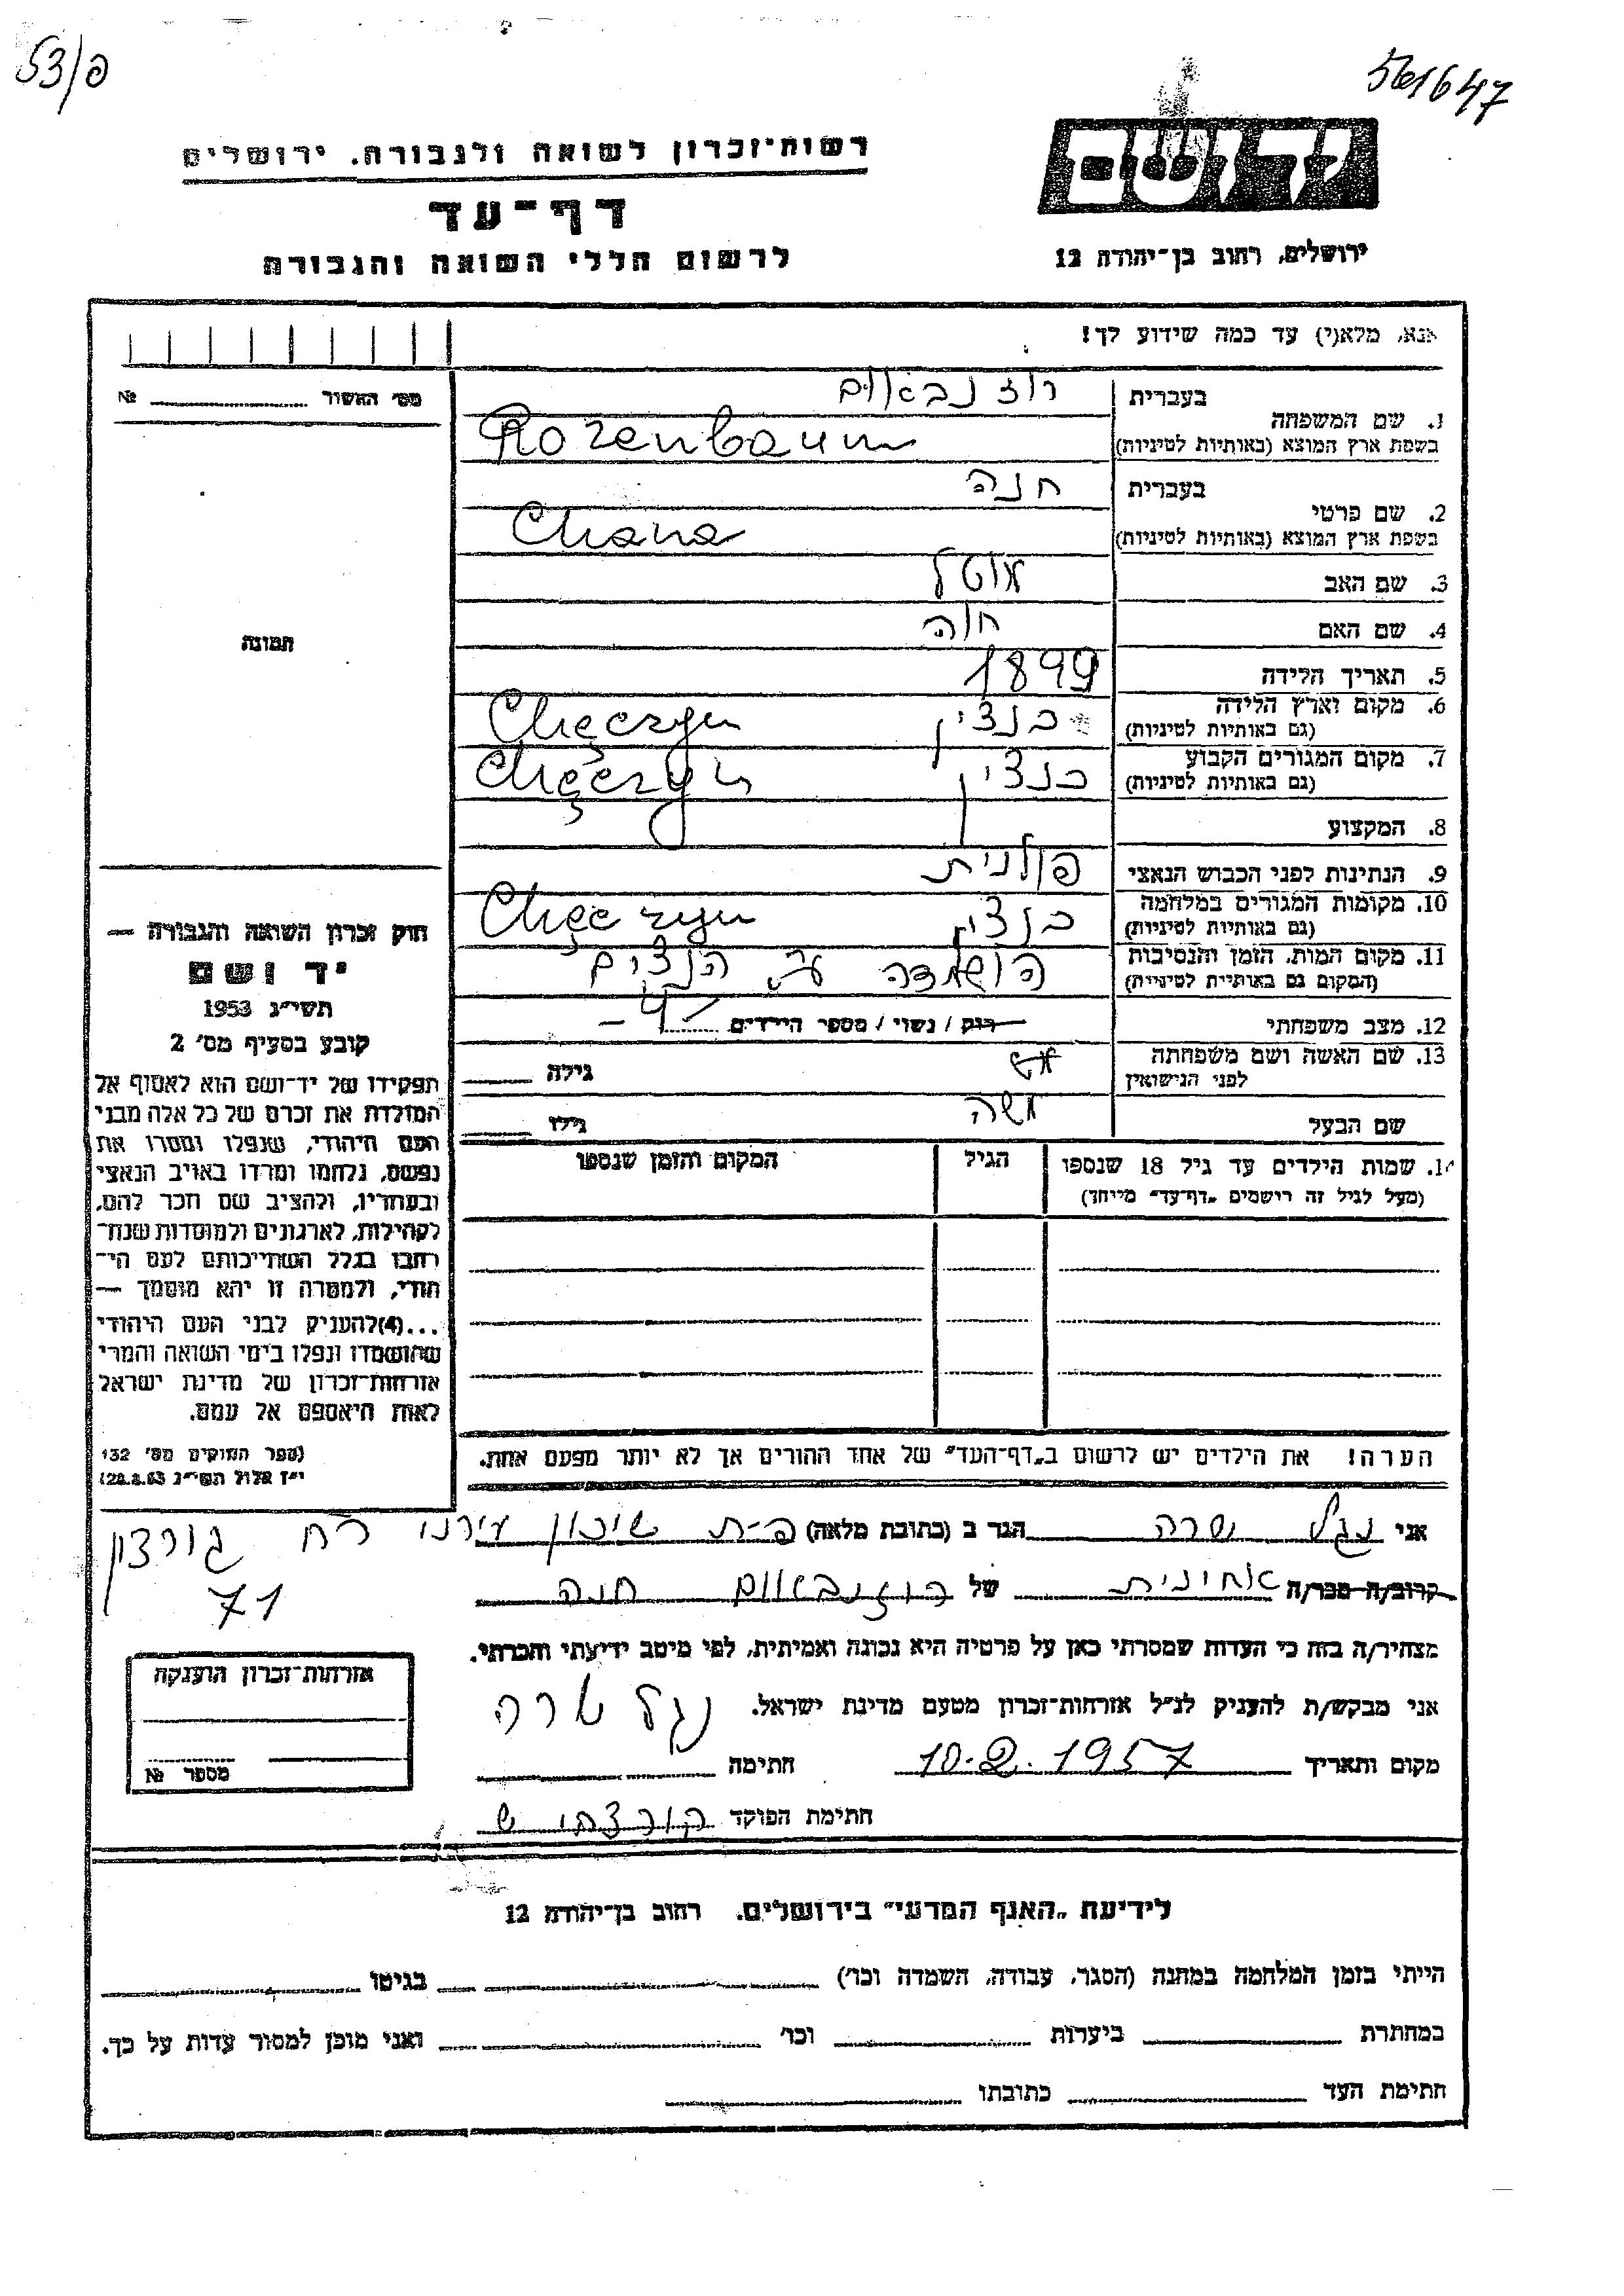 53/פ
561647
יד ושם
רשות־זכרון לשואה ולגבורה, ירושלים
דף־עד
לרשום חללי השואה והגבורה
ירושלים, רחוב בן־יהודה 12
אנא, מלא(י) עד כמה שידוע לך!
מס' האשור № 
בעברית רוזנבאום
1. שם המשפחה
בשפת ארץ המוצא (באותיות לטיניות) Rozenbaum
בעברית חנה
2. שם פרטי
בשפת ארץ המוצא (באותיות לטיניות) Chana
3. שם האב
4. שם האם חוה
5. תאריך הלידה 1899
6. מקום וארץ הלידה
(גם באותיות לטיניות) כנצין Chęczyn
7. מקום המגורים הקבוע
(גם באותיות לטיניות) כנצין Chęczyn
8. המקצוע
9. הנתינות לפני הכבוש הנאצי פולנית
10. מקומות המגורים במלחמה
(גם באותיות לטיניות) כנצין Chęczyn
11. מקום המות, הזמן והנסיבות
(המקום גם באותיות לטיניות) הושמדה ע"י הנצים
12. מצב משפחתי רווק / נשוי / מספר הילדים 4
13. שם האשה ושם משפחתה
לפני הנישואין גילה
שם הבעל משה גילו
תמונה
חוק זכרון השואה והגבורה —
יד ושם
תשי"ג 1953
קובע בסעיף מס' 2
תפקידו של יד־ושם הוא לאסוף אל
המולדת את זכרם של כל אלה מבני
העם היהודי, שנפלו ומסרו את
נפשם, נלחמו ומרדו באויב הנאצי
ובעוזריו, ולהציב שם וזכר להם,
לקהילות, לארגונים ולמוסדות שנח־
רבו בגלל השתייכותם לעם הי־
הודי, ולמטרה זו יהא מוסמך —
...(4)להעניק לבני העם היהודי
שהושמדו ונפלו בימי השואה והמרי
אזרחות־זכרון של מדינת ישראל
לאות היאספם אל עמם.
(ספר החוקים מס' 132
י"ז אלול תשי"ג 28.8.53)
14. שמות הילדים עד גיל 18 שנספו
(מעל לגיל זה רושמים "דף־עד" מיוחד)
הגיל
המקום והזמן שנספו
הערה! את הילדים יש לרשום ב"דף־העד" של אחד ההורים אך לא יותר מפעם אחת.
אני נגל שרה הגר ב (כתובת מלאה) פ־ת שיכון עירוני רח גורדון
71
קרוב/ה מכר/ה אחינית של רוזנבאום חנה
מצהיר/ה בזה כי העדות שמסרתי כאן על פרטיה היא נכונה ואמיתית, לפי מיטב ידיעתי והכרתי.
אני מבקש/ת להעניק לנ"ל אזרחות־זכרון מטעם מדינת ישראל.
מקום ותאריך 10.2.1957 חתימה נגל שרה
חתימת הפוקד
אזרחות־זכרון הוענקה
מספר №
לידיעת "האגף המדעי" בירושלים, רחוב בן־יהודה 12
הייתי בזמן המלחמה במחנה (הסגר, עבודה, השמדה וכו') בגיטו
במחתרת ביערות וכו' ואני מוכן למסור עדות על כך.
חתימת העד כתובתו